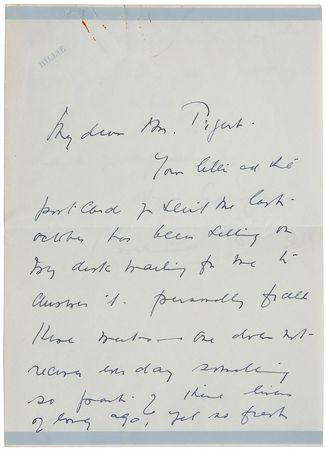 BILLIE
My dear Mr. Tigert.
Your letter and the
post card you sent me last
october has been sitting on
my desk waiting for me to
answer it. personally for all
these months — one does not
receive every day something
so of these lines
of long ago, yet so fresh